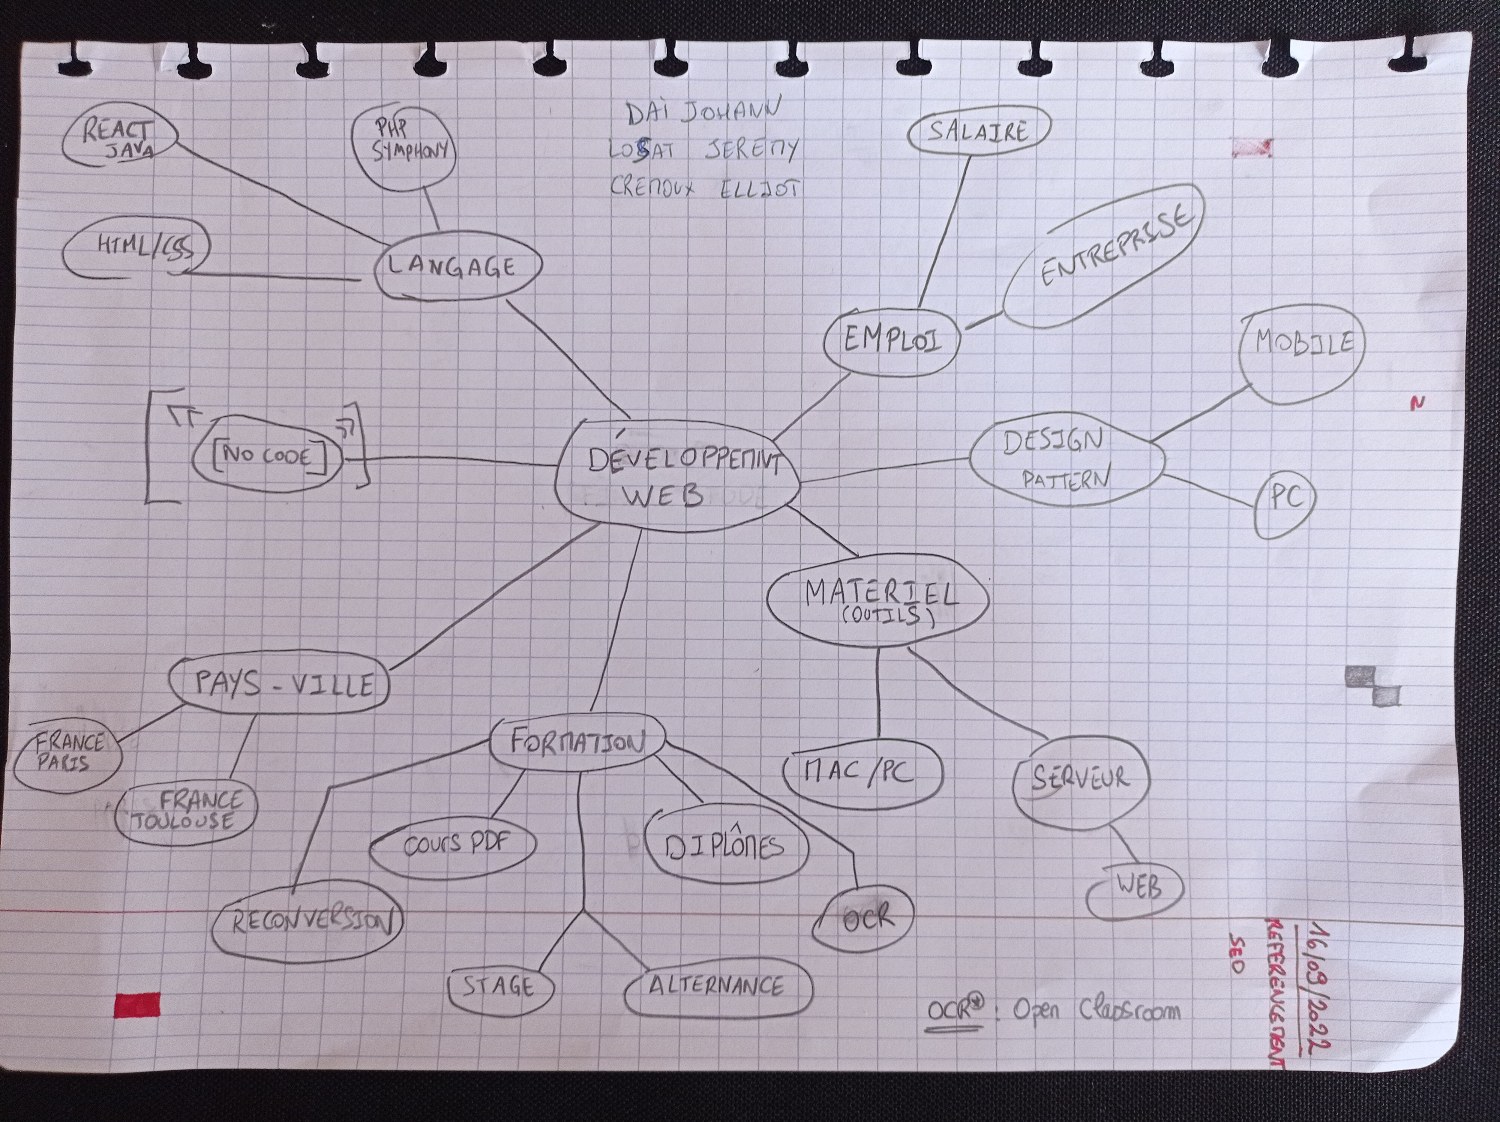 DAÏ JOHANN
LOSAT JEREMY
CREMOUX ELLIOT
REACT
JAVA
PHP
SYMPHONY
HTML/CSS
LANGAGE
SALAIRE
ENTREPRISE
EMPLOI
MOBILE
[NO CODE]
DÉVELOPPEMNT
WEB
DESIGN
PATTERN
PC
MATERIEL
(OUTILS)
PAYS - VILLE
FRANCE
PARIS
FRANCE
TOULOUSE
FORMATION
MAC/PC
SERVEUR
WEB
COURS PDF
DIPLÔMES
RECONVERSION
OCR
STAGE
ALTERNANCE
OCR* : Open Classroom
16/09/2022
REFERENCEMENT
SEO
N